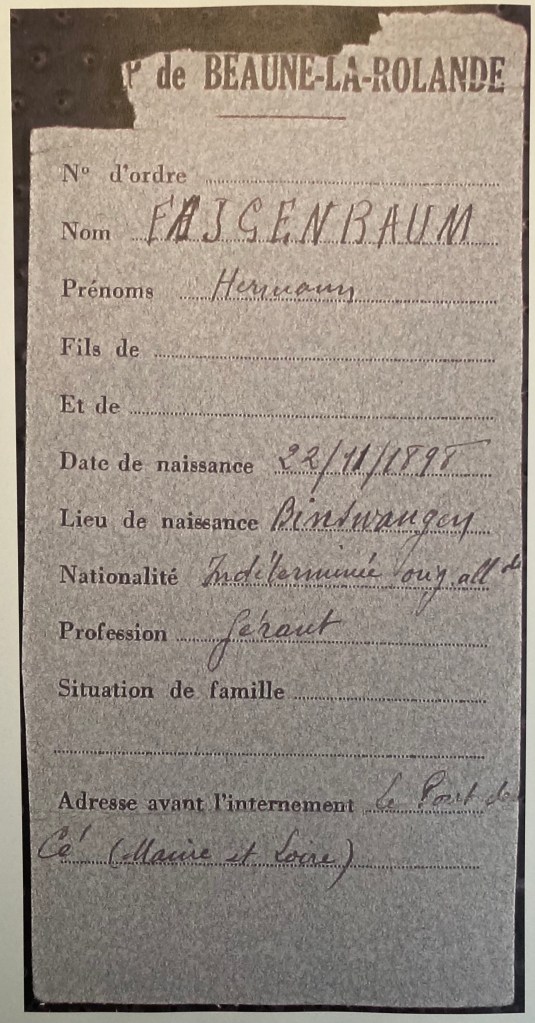 P de BEAUNE-LA-ROLANDE
Nº d'ordre
Nom FAJGENBAUM
Prénoms Hermann
Fils de
Et de
Date de naissance 22/11/1898
Lieu de naissance Binswangen
Nationalité Indéterminée orig. all de
Profession Gérant
Situation de famille
Adresse avant l'internement Le Pont de
Cé (Maine et Loire)